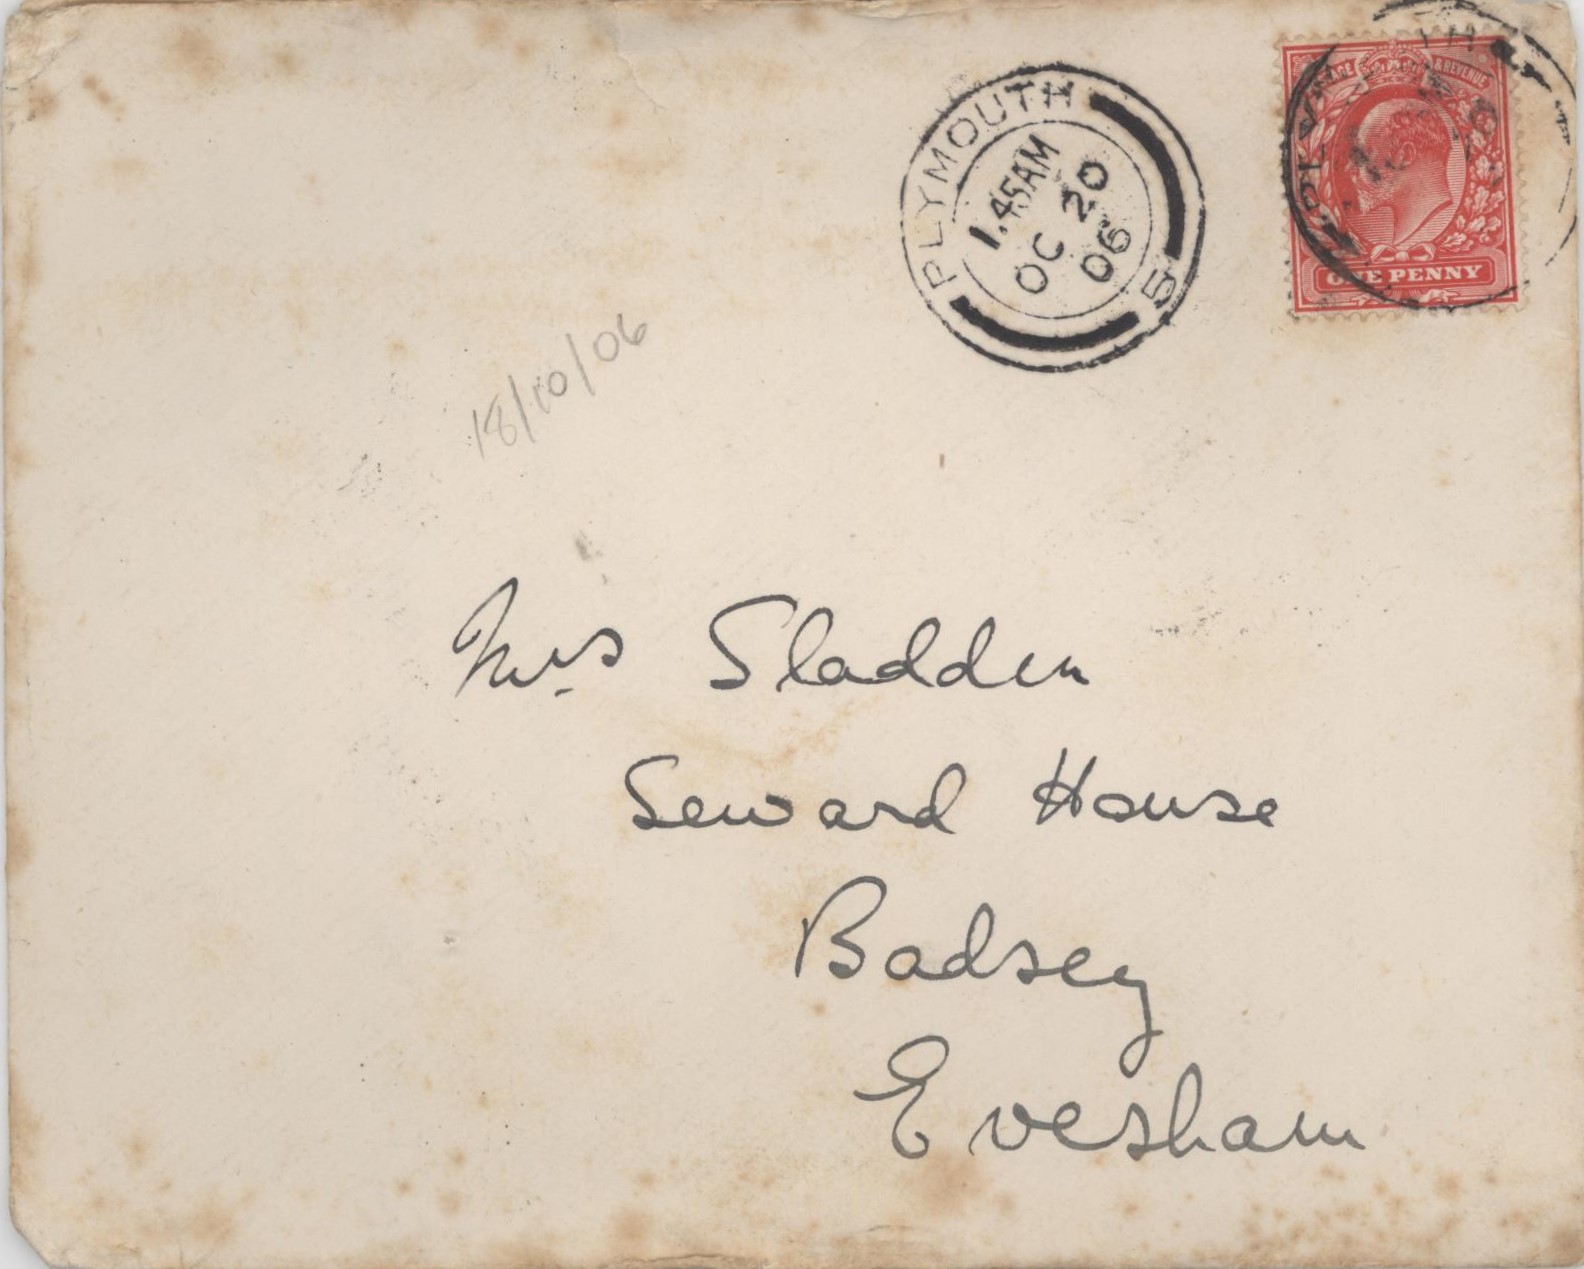 PLYMOUTH
1.45AM
OC 20
06
5
& REVENUE
ONE PENNY
18/10/06
Mrs Sladden
Seward House
Badsey
Evesham